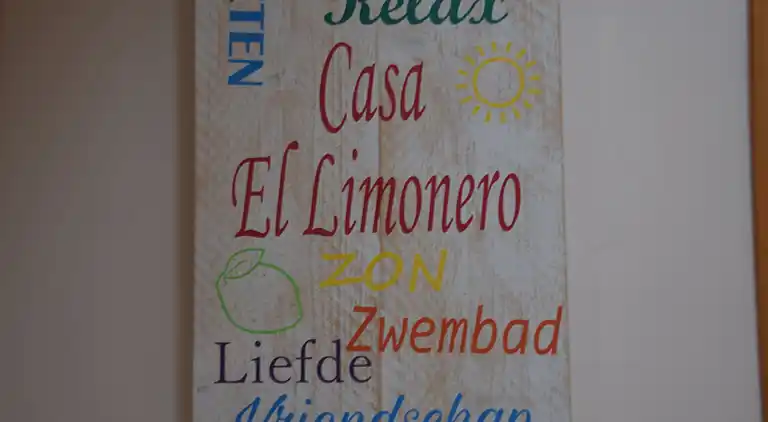 Relax
Casa
El Limonero
ZON
Zwembad
Liefde
Vriendschap